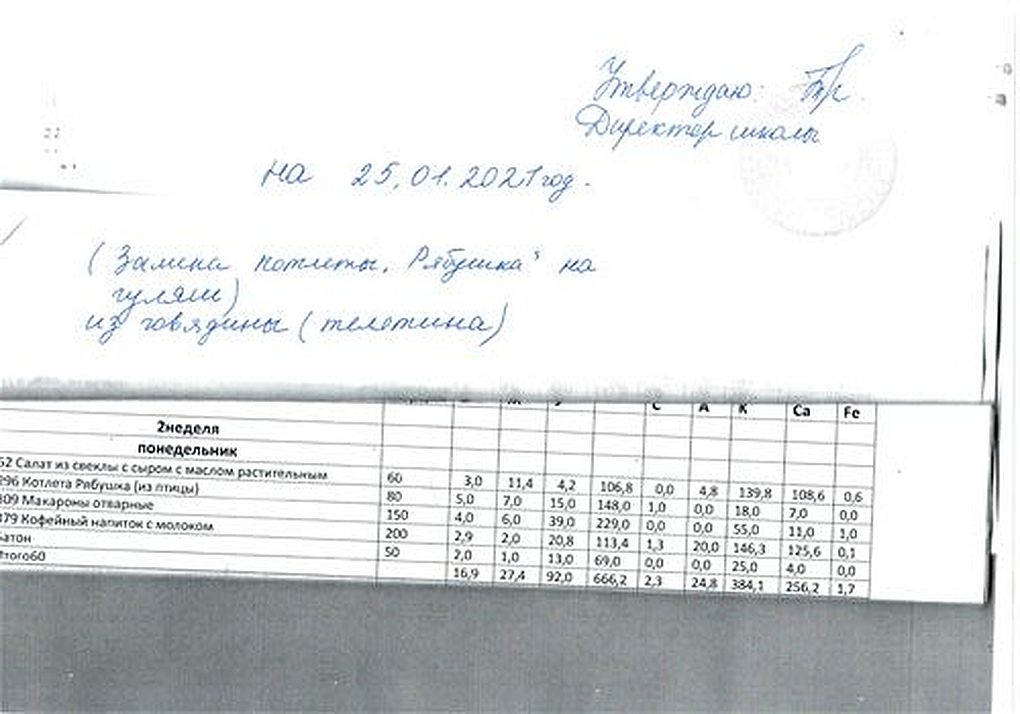 Утверждаю:
Директор школы
на 25.01.2021 год.
(Замена котлеты „Рябушка" на
гуляш)
из говядины (телетина)
С А К Ca Fe
2неделя
понедельник
52 Салат из свеклы с сыром с маслом растительным 60 3,0 11,4 4,2 106,8 0,0 4,8 139,8 108,6 0,6
296 Котлета Рябушка (из птицы) 80 5,0 7,0 15,0 148,0 1,0 0,0 18,0 7,0 0,0
309 Макароны отварные 150 4,0 6,0 39,0 229,0 0,0 0,0 55,0 11,0 1,0
379 Кофейный напиток с молоком 200 2,9 2,0 20,8 113,4 1,3 20,0 146,3 125,6 0,1
Батон 50 2,0 1,0 13,0 69,0 0,0 0,0 25,0 4,0 0,0
Итого60 16,9 27,4 92,0 666,2 2,3 24,8 384,1 256,2 1,7